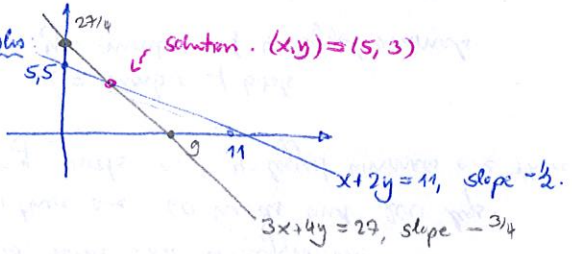 27/4
solution. (x,y) = (5, 3)
5,5
9
11
x+2y=11, slope -1/2.
3x+4y=27, slope -3/4